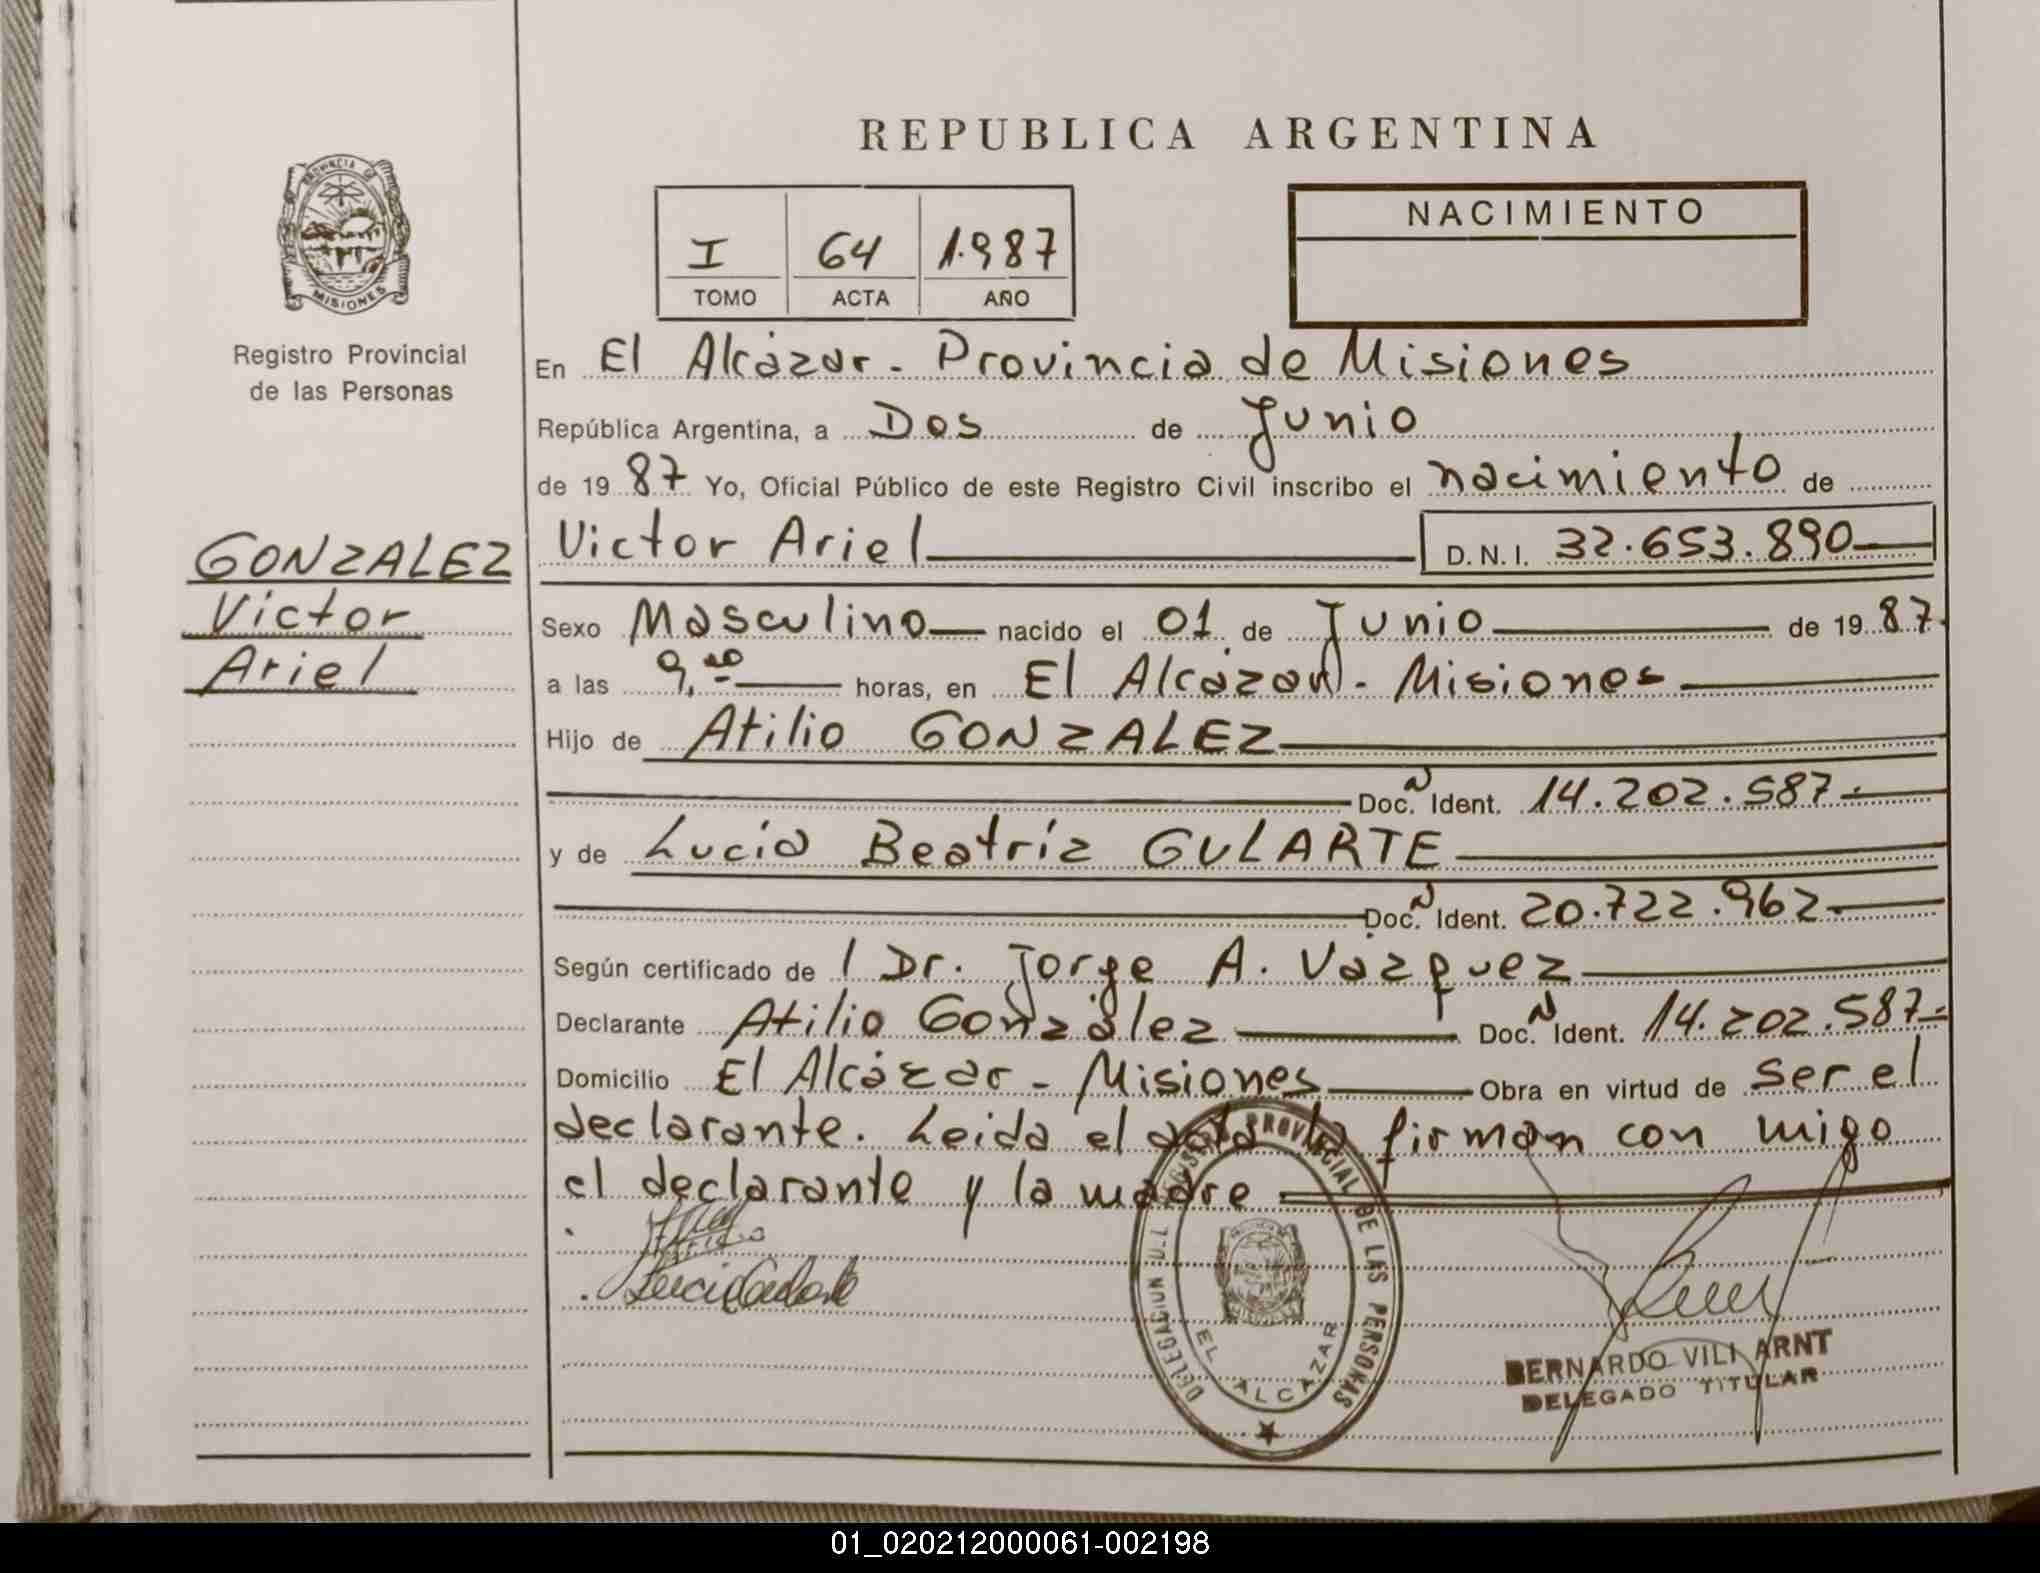 REPUBLICA ARGENTINA
PROVINCIA DE
MISIONES
Registro Provincial
de las Personas
I 64 1.987
TOMO ACTA AÑO
NACIMIENTO
En El Alcázar - Provincia de Misiones
República Argentina, a Dos de Junio
de 19 87 Yo, Oficial Público de este Registro Civil inscribo el nacimiento de
GONZALEZ
Victor
Ariel
Victor Ariel D.N.I. 32.653.890
Sexo Masculino nacido el 01 de Junio de 19 87.
a las 9, horas, en El Alcázar - Misiones
Hijo de Atilio GONZALEZ
Doc. N Ident. 14.202.587.-
y de Lucía Beatríz GULARTE
Doc. N Ident. 20.722.962
Según certificado de l Dr. Jorge A. Vázquez
Declarante Atilio González Doc. N Ident. 14.202.587.-
Domicilio El Alcázar - Misiones Obra en virtud de ser el
declarante. Leida el acta la firman con migo
el declarante y la madre
PROVINCIAL DE LAS PERSONAS
DELEGACION
EL ALCAZAR
BERNARDO VILI ARNT
DELEGADO TITULAR
01_020212000061-002198